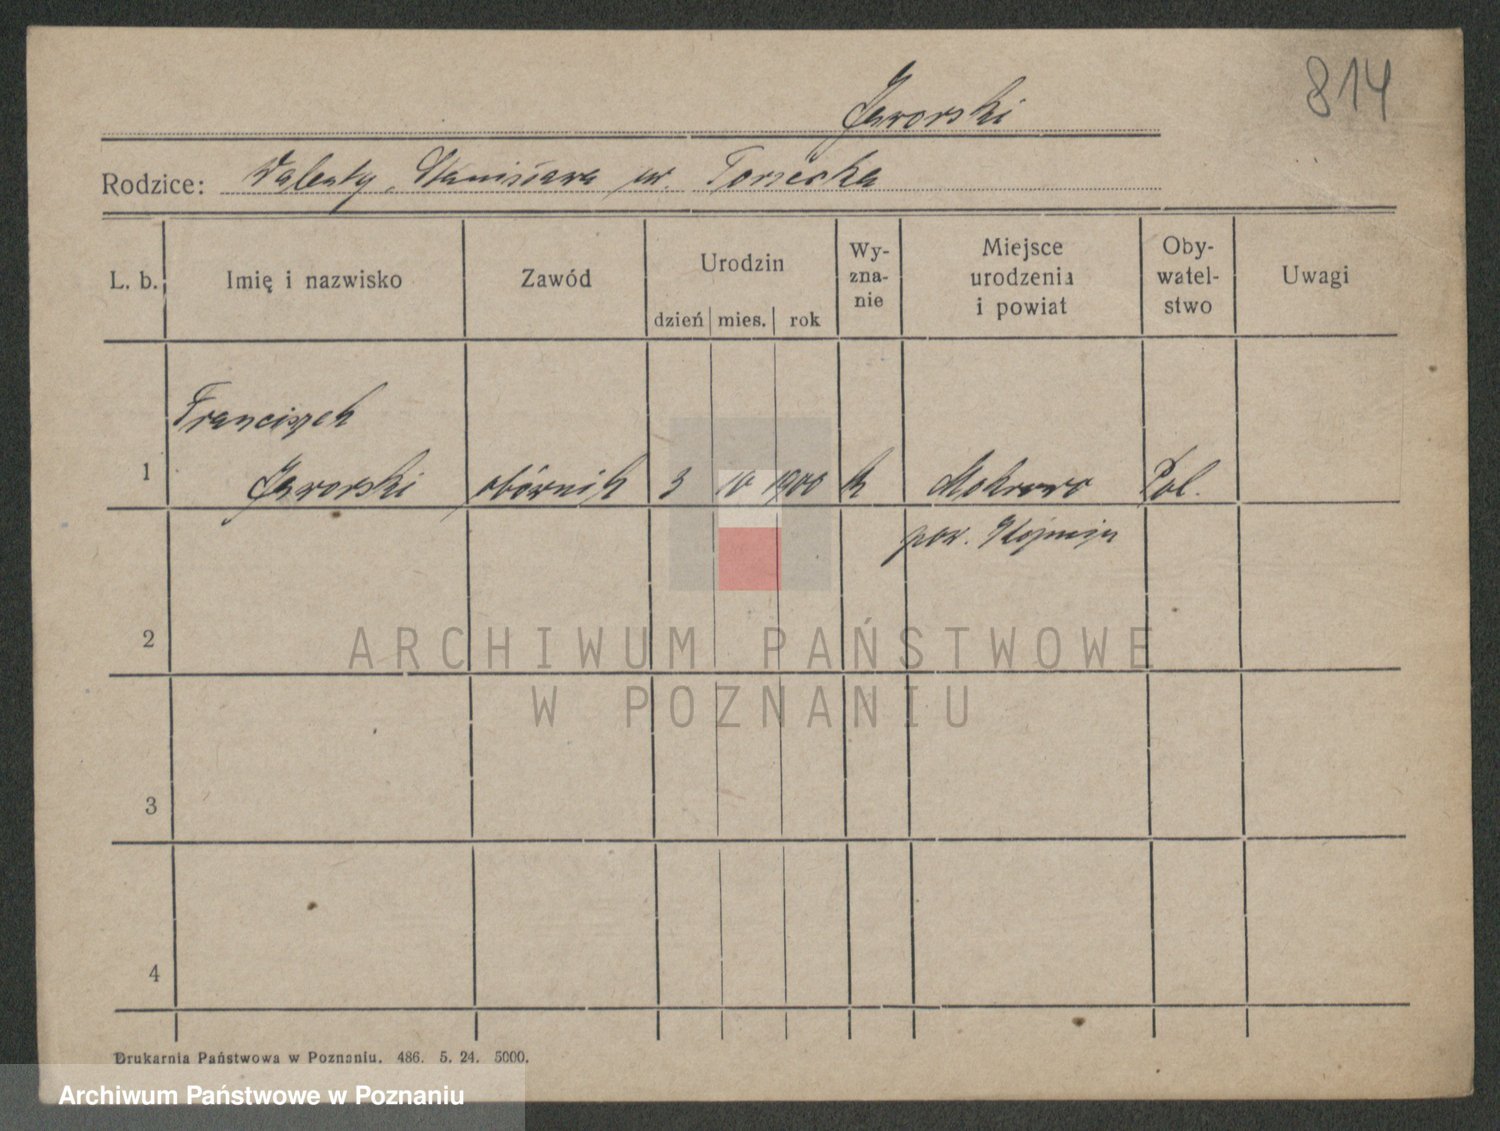 814
Jaworski
Rodzice: Walenty, Stanisława ur.
L. b.
Imię i nazwisko
Zawód
Urodzin
dzień mies. rok
Wy-
zna-
nie
Miejsce
urodzenia
i powiat
Oby-
watel-
stwo
Uwagi
Franciszek
1 Jaworski 3 10 1900 k Mokrowo Pol.
pow.
2
3
4
ARCHIWUM PAŃSTWOWE
W POZNANIU
Drukarnia Państwowa w Poznaniu. 486. 5. 24. 5000.
Archiwum Państwowe w Poznaniu